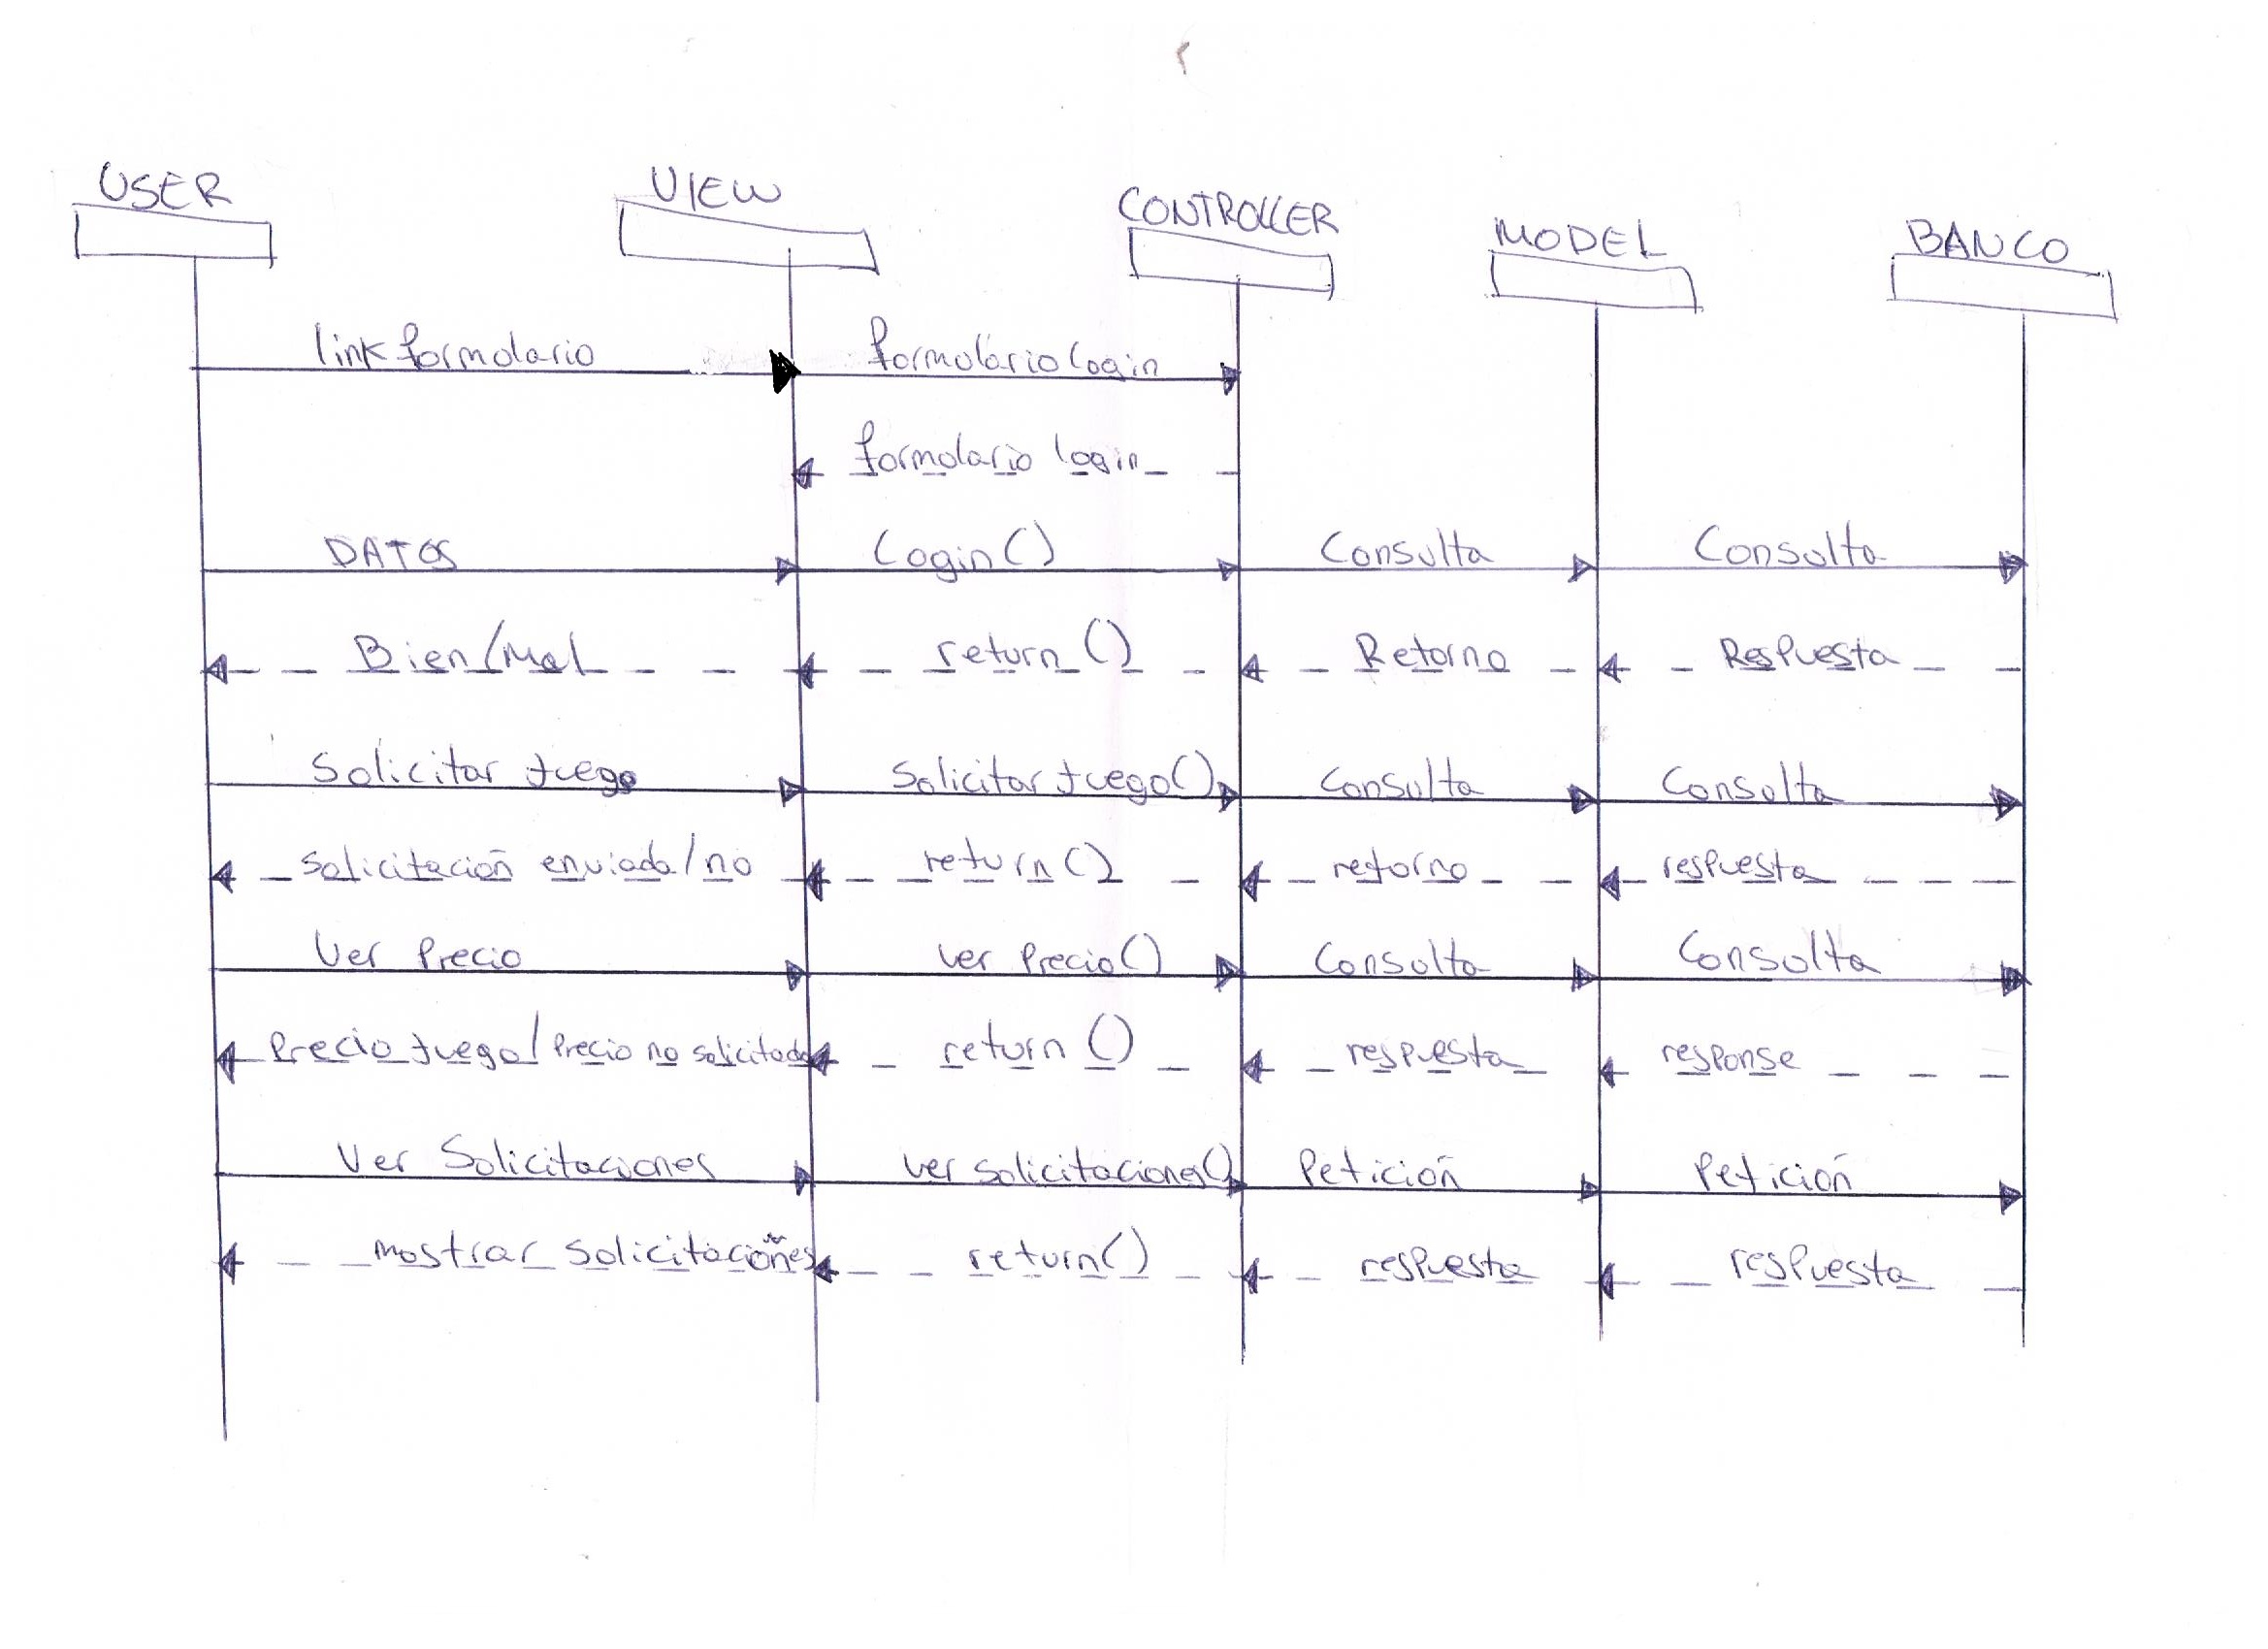 USER VIEW CONTROLLER MODEL BANCO
link formulario formulario login
formulario login
DATOS Login() Consulta Consulta
Bien/Mal return() Retorno Respuesta
Solicitar juego Solicitar juego() Consulta Consulta
solicitación enviada/no return() retorno respuesta
Ver Precio ver Precio() Consulta Consulta
Precio juego/Precio no solicitado return() respuesta response
Ver Solicitaciones ver solicitaciones() Petición Petición
mostrar solicitaciones return() respuesta respuesta